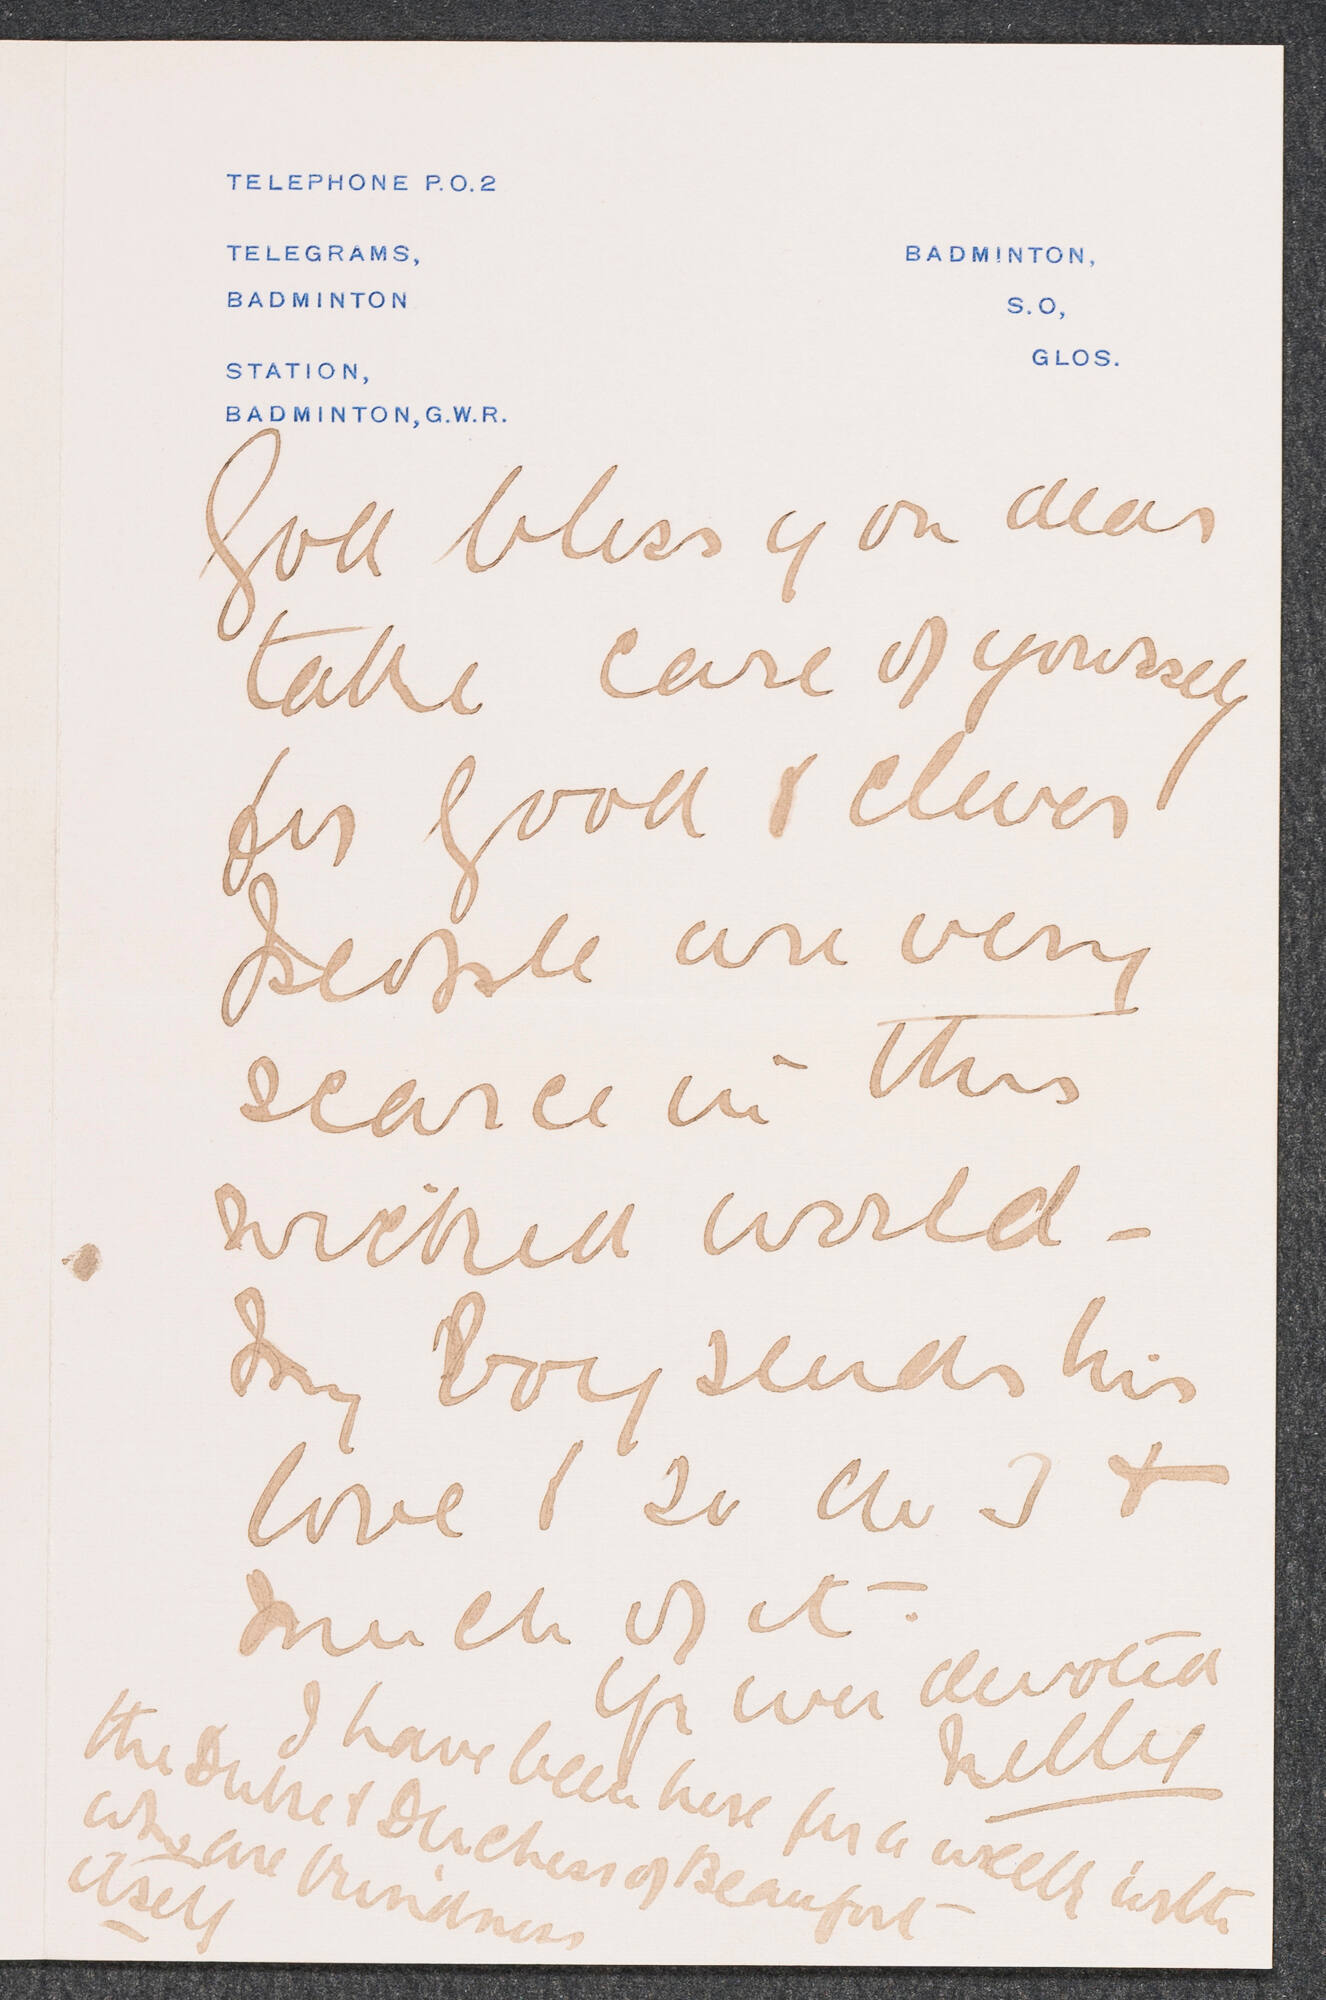 TELEPHONE P.O.2
TELEGRAMS,
BADMINTON
STATION,
BADMINTON, G.W.R.
BADMINTON,
S.O,
GLOS.
God bless you dear
take care of yourself
for good & clever
people are very
scarce in this
wicked world -
My Boy sends his
love & so do I &
much of it -.
Yr ever devoted
Nelly
I have been here for a week with
the Duke & Duchess of Beaufort -
who are kindness
itself